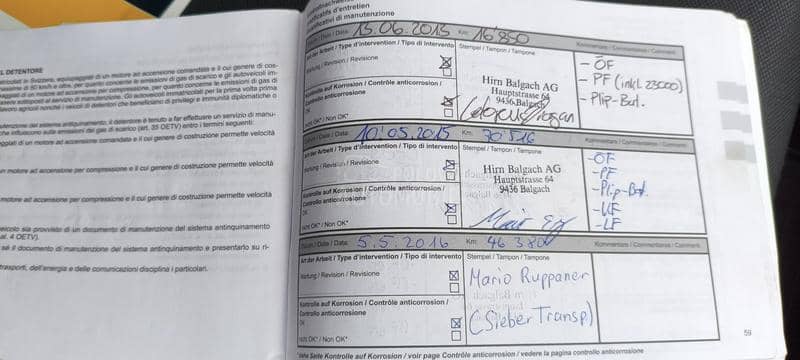 L DETENTORE
Svizzera, equipaggiati di un motore ad accensione comandata e il cui genere di cos-
missione di 50 km/h e oltre, per quanto concerne le emissioni di gas di scarico e gli autoveicoli im-
motore ad accensione per compressione, per quanto concerne le emissioni di
sottoposti al servizio di manutenzione. Gli autoveicoli immatricolati per la prima volta prima
lavoro agricoli nonché i veicoli di detentori che beneficiano di privilegi e immunità diplomatiche o
zione del sistema antinquinamento, il detentore è tenuto a far effettuare un servizio di manu-
che influiscono sulle emissioni dei gas di scarico (art. 35 OETV) entro i termini seguenti:
di un motore ad accensione comandata e il cui genere di costruzione permette velocità
n motore ad accensione per compressione e il cui genere di costruzione permette velocità
motore ad accensione per compressione e il cui genere di costruzione permette velocità
veicolo sia provvisto di un documento di manutenzione del sistema antinquinamento
al. 4 OETV).
sé il documento di manutenzione del sistema antinquinamento e presentarlo su ri-
trasporti, dell'energia e delle comunicazioni disciplina i particolari.
d'entretien
di manutenzione
Date / Data: 15.06.2015 Km: 16'850
der Arbeit / Type d'intervention / Tipo di intervento Stempel / Tampon / Tampone Kommentare / Commentaires / Comment.
Wartung / Revision / Revisione
Kontrolle auf Korrosion / Contrôle anticorrosion /
Controllo anticorrosione
nicht OK* / Non OK*
Hirn Balgach AG
Hauptstrasse 64
9436 Balgach
- ÖF
- PF (inkl. 23000)
- Plip-Bat.
Date / Data: 10.05.2015 Km:
der Arbeit / Type d'intervention / Tipo di intervento Stempel / Tampon / Tampone
Wartung / Revision / Revisione
Kontrolle auf Korrosion / Contrôle anticorrosion /
Controllo anticorrosione
OK
nicht OK* / Non OK*
Hirn Balgach AG
Hauptstrasse 64
9436 Balgach
-ÖF
-PF
-Plip-Bat.
-LF
Datum / Date / Data: 5.5.2016 Km: 46380 Kommentare / Commentaires / Comment.
Art der Arbeit / Type d'intervention / Tipo di intervento Stempel / Tampon / Tampone
Wartung / Revision / Revisione
Kontrolle auf Korrosion / Contrôle anticorrosion /
Controllo anticorrosione
OK
nicht OK* / Non OK*
Mario Ruppaner
(Sieber Transp)
*siehe Seite Kontrolle auf Korrosion / voir page Contrôle anticorrosion / vedere la pagina controllo anticorrosione
59